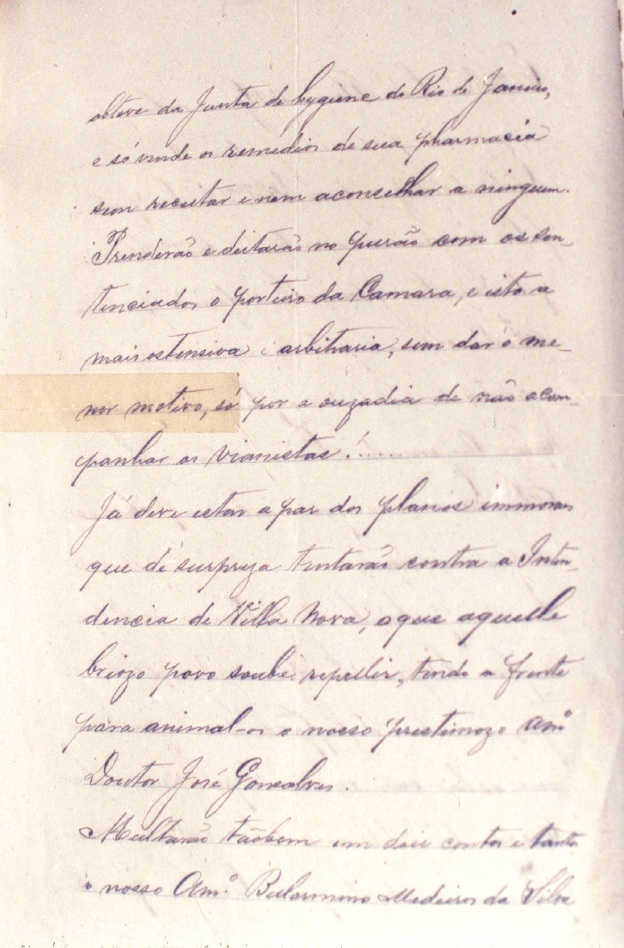 obteve da Junta de hygiene do Rio de Janeiro,
e só vende os remedios de sua pharmacia
sem receitar e nem aconcelhar a ninguem.
Prenderão e deitarão no purão com os sen-
tenciados o porteiro da Camara, e isto a
mais ostensiva e arbitraria, sem dar o me-
nor motivo, só por a ouzadia de não acom-
panhar os vianistas!......
Já deve estar a par dos planos immoraes
que de surpreza tentarão contra a Inten-
dencia de Villa Nova, o que aquelle
briozo povo soube repellir, tendo a frente
para animal-os o nosso prestimozo Amº
Doutor José Gonsalves.
Multarão tãobem em dois contos e tanto
o nosso Amº Belarmino Medeiros da Silva